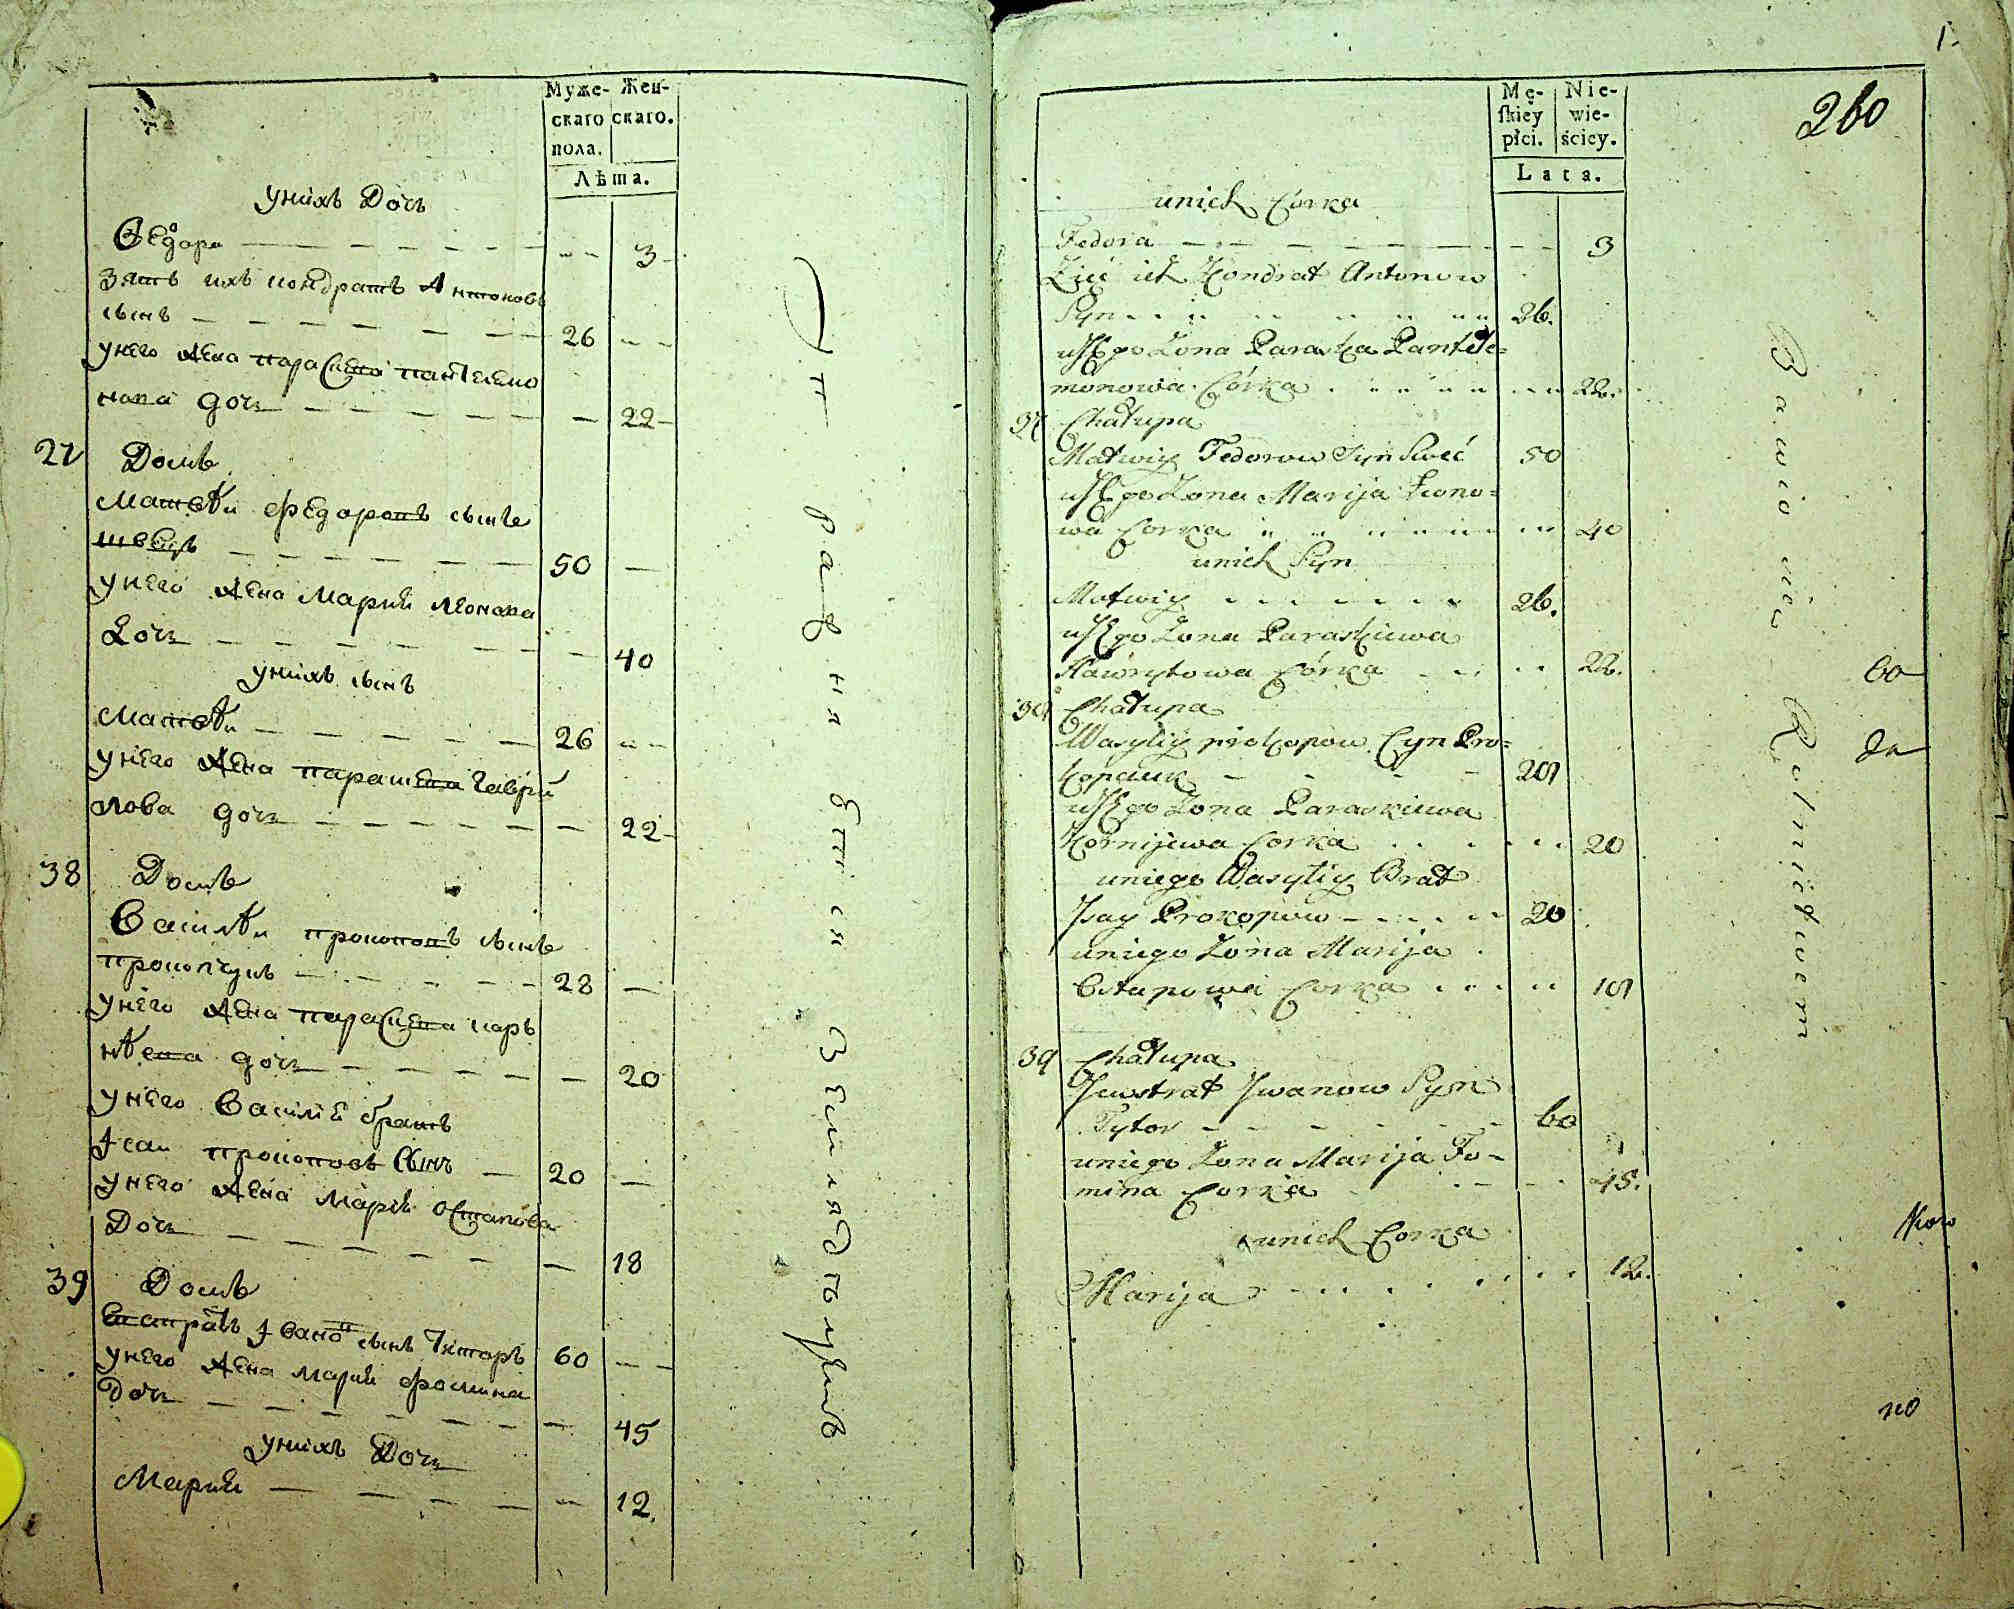 Муже-
скаго
пола.
Жен-
скаго.
Лѣта.
унихъ Дочь
Ѳедора 3
Зять ихъ кондратъ Антоновъ
сынъ 26
унего жена параскева пантелемо
нова дочь 22
27 Домъ
Матвѣи федоровъ сынъ
швецъ 50
унего жена Марии леонова
Дочь 40
унихъ сынъ
Матвѣи 26
унего жена парашева гаври
лова дочь 22
38 Домъ
Василѣи прокоповъ сынъ
прокопчукъ 28
унего жена параскева кор
нѣева дочь 20
унего Василиѣ братъ
Iсаи прокоповъ сынъ 20
унего жена Марiѣ остапова
Дочь 18
39 Домъ
Евстратъ Iвановъ сынъ Титоръ 60
унего жена марии фомина
дочь 45
унихъ Дочь
Марии 12.
Отправняется земляделиемъ
1.
260
Mę-
ſkiey
płci.
Nie-
wie-
ściey.
Lata.
unich Corka
Fedora 3
Zięć ich Kondrat Antonow
Syn 26.
uJego Zona Paraska Pantele=
monowa Córka 22.
37 Chałupa
Matwiy Fedorow Syn Swec 50
uJego Zona Marija Leono=
wa Corka 40
unich Syn
Matwiy 26.
uJego Zona Paraskiewa
Hawryłowa Córka 22.
38 Chałupa
Wasyliy prokopow Syn Pro=
kopczuk 28
uJego Zona Paraskiewa
Kornijewa Corka 20
uniego Wasyliy Brat
Jsay Prokopow 20
uniego Zona Marija
Ostapowa Corka 18
39 Chałupa
Jewstrat Jwanow Syn
Tytor 60
uniego Zona Marija Fo-
mina Corka 45.
unich Corka
Marija 12.
Bawio się Rolnictwem